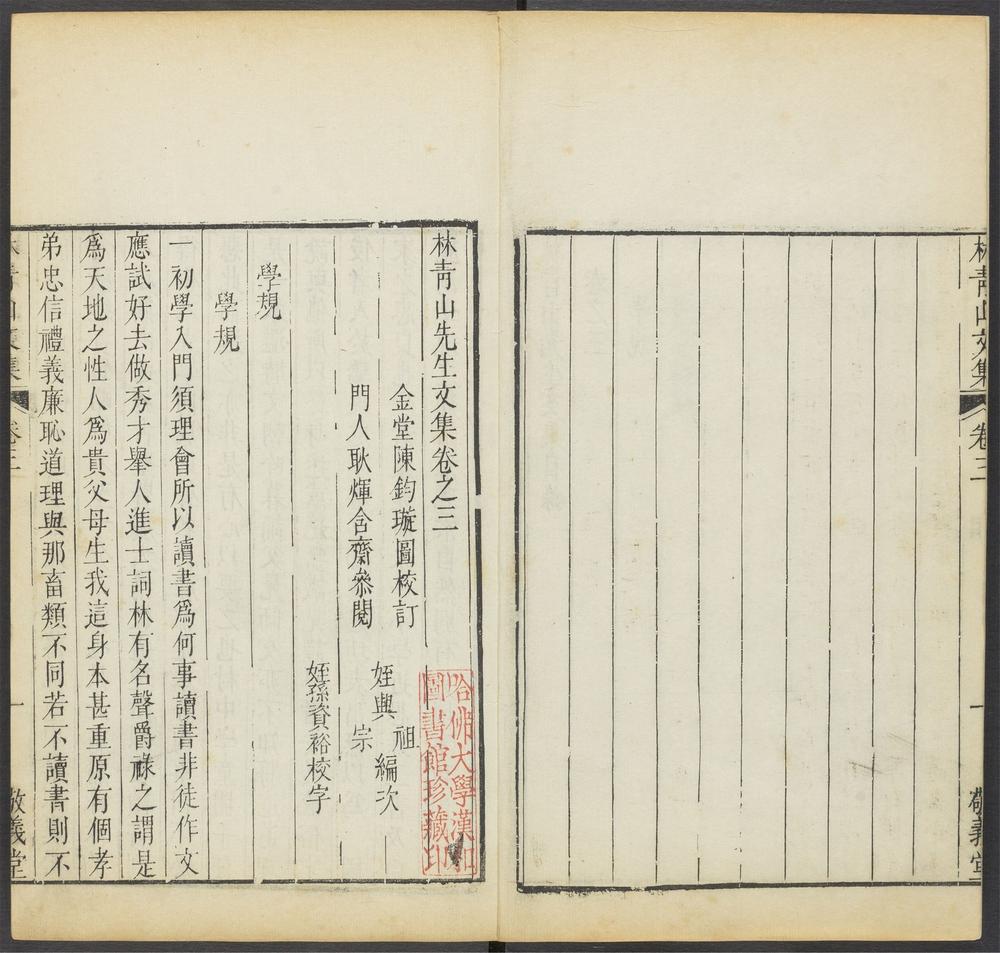 林青山文集
卷三
一
敬義堂
林青山先生文集卷之三
金堂陳鈞璇圖校訂
門人耿煇含齋叅閱
姪興祖
宗
編次
姪孫資裕校字
學規
學規
一初學入門須理會所以讀書爲何事讀書非徒作文
應試好去做秀才舉人進士詞林有名聲爵祿之謂是
爲天地之性人爲貴父母生我這身本甚重原有個孝
弟忠信禮義廉恥道理與那畜類不同若不讀書則不
卷三
一
敬義堂
哈佛大學漢和
圖書館珍藏印